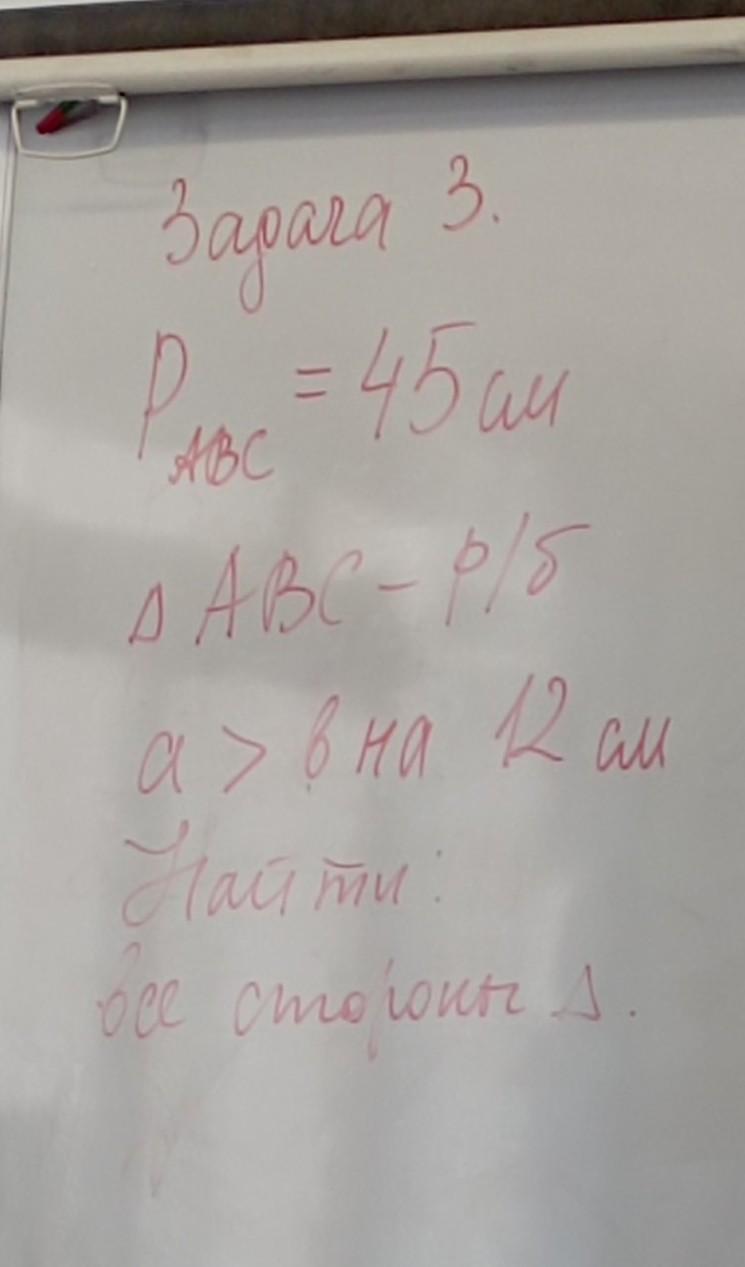 Задача 3.
P_ABC = 45 см
Δ ABC – р/б
а > в на 12 см
Найти:
все стороны Δ.